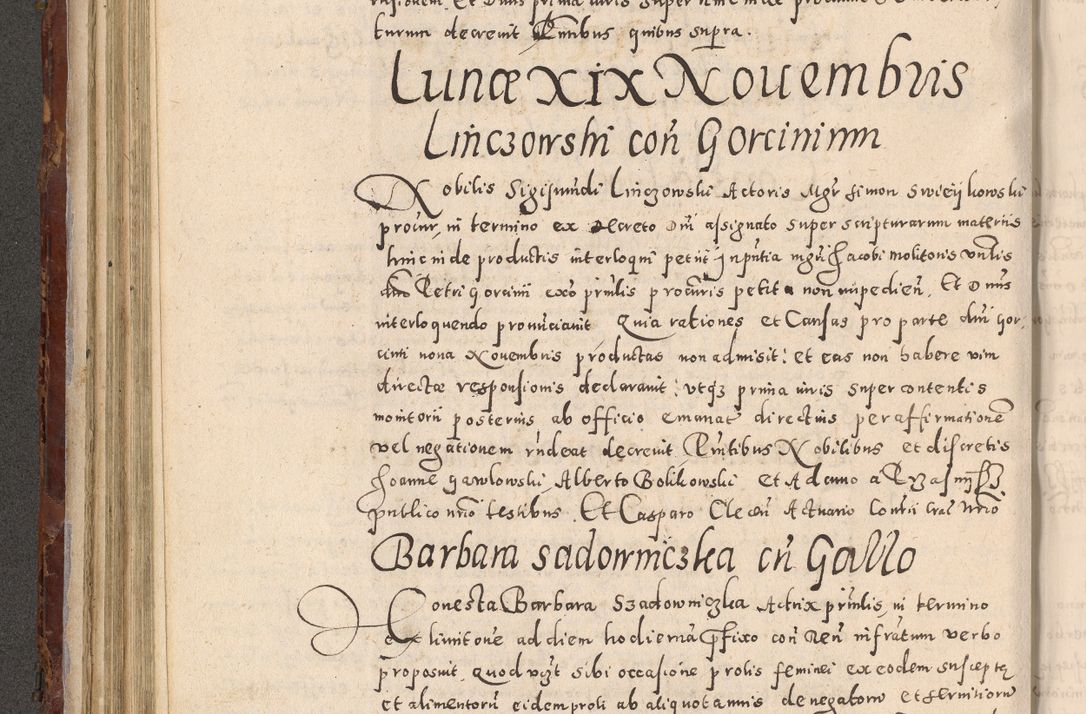 turum decrevit Pntibus quibus supra.
Lunæ XIX Nouembris
Linczowski coñ Gorcinium
Nobilis Sigismundi Linczowski Actoris Mgr Simon Swieijkowski
procur, in termino ex Decreto Dni assignato super scripturarum materiis
hinc inde productis interloqui petiit in pntia mgri Jacobi molitoris
dni Petri Gorcinii exo prnlis procuris petita non impedien. Et Dnus
interloquendo pronunciauit Quia rationes et Causas pro parte dni Gor
cini nona Nouembris productas non admisit: et eas non habere vim
directæ responsionis declarauit: utqz prima iuris super contentis
monitorii posterius ab officio emanat directius per affirmationē
vel negationem rñdeat decreuit Pntibus Nobilibus et discretis
Joanne Gawlowski, Alberto Bolikowski et Adamo a
publico nrio testibus. Et Casparo Clecen Actuario Nrio
Barbara Sadowniczka cñ Gallo
Honesta Barbara Szadowniczka Actrix prinlis, in termino
ex limitone ad diem hodiernā pfixo con Reū infratum verbo
proposuit quod sibi occasione prolis feminei ex eodem susceptę
et alimentorū eidem proli ab aliquot annis denegatorū et seruitiorū